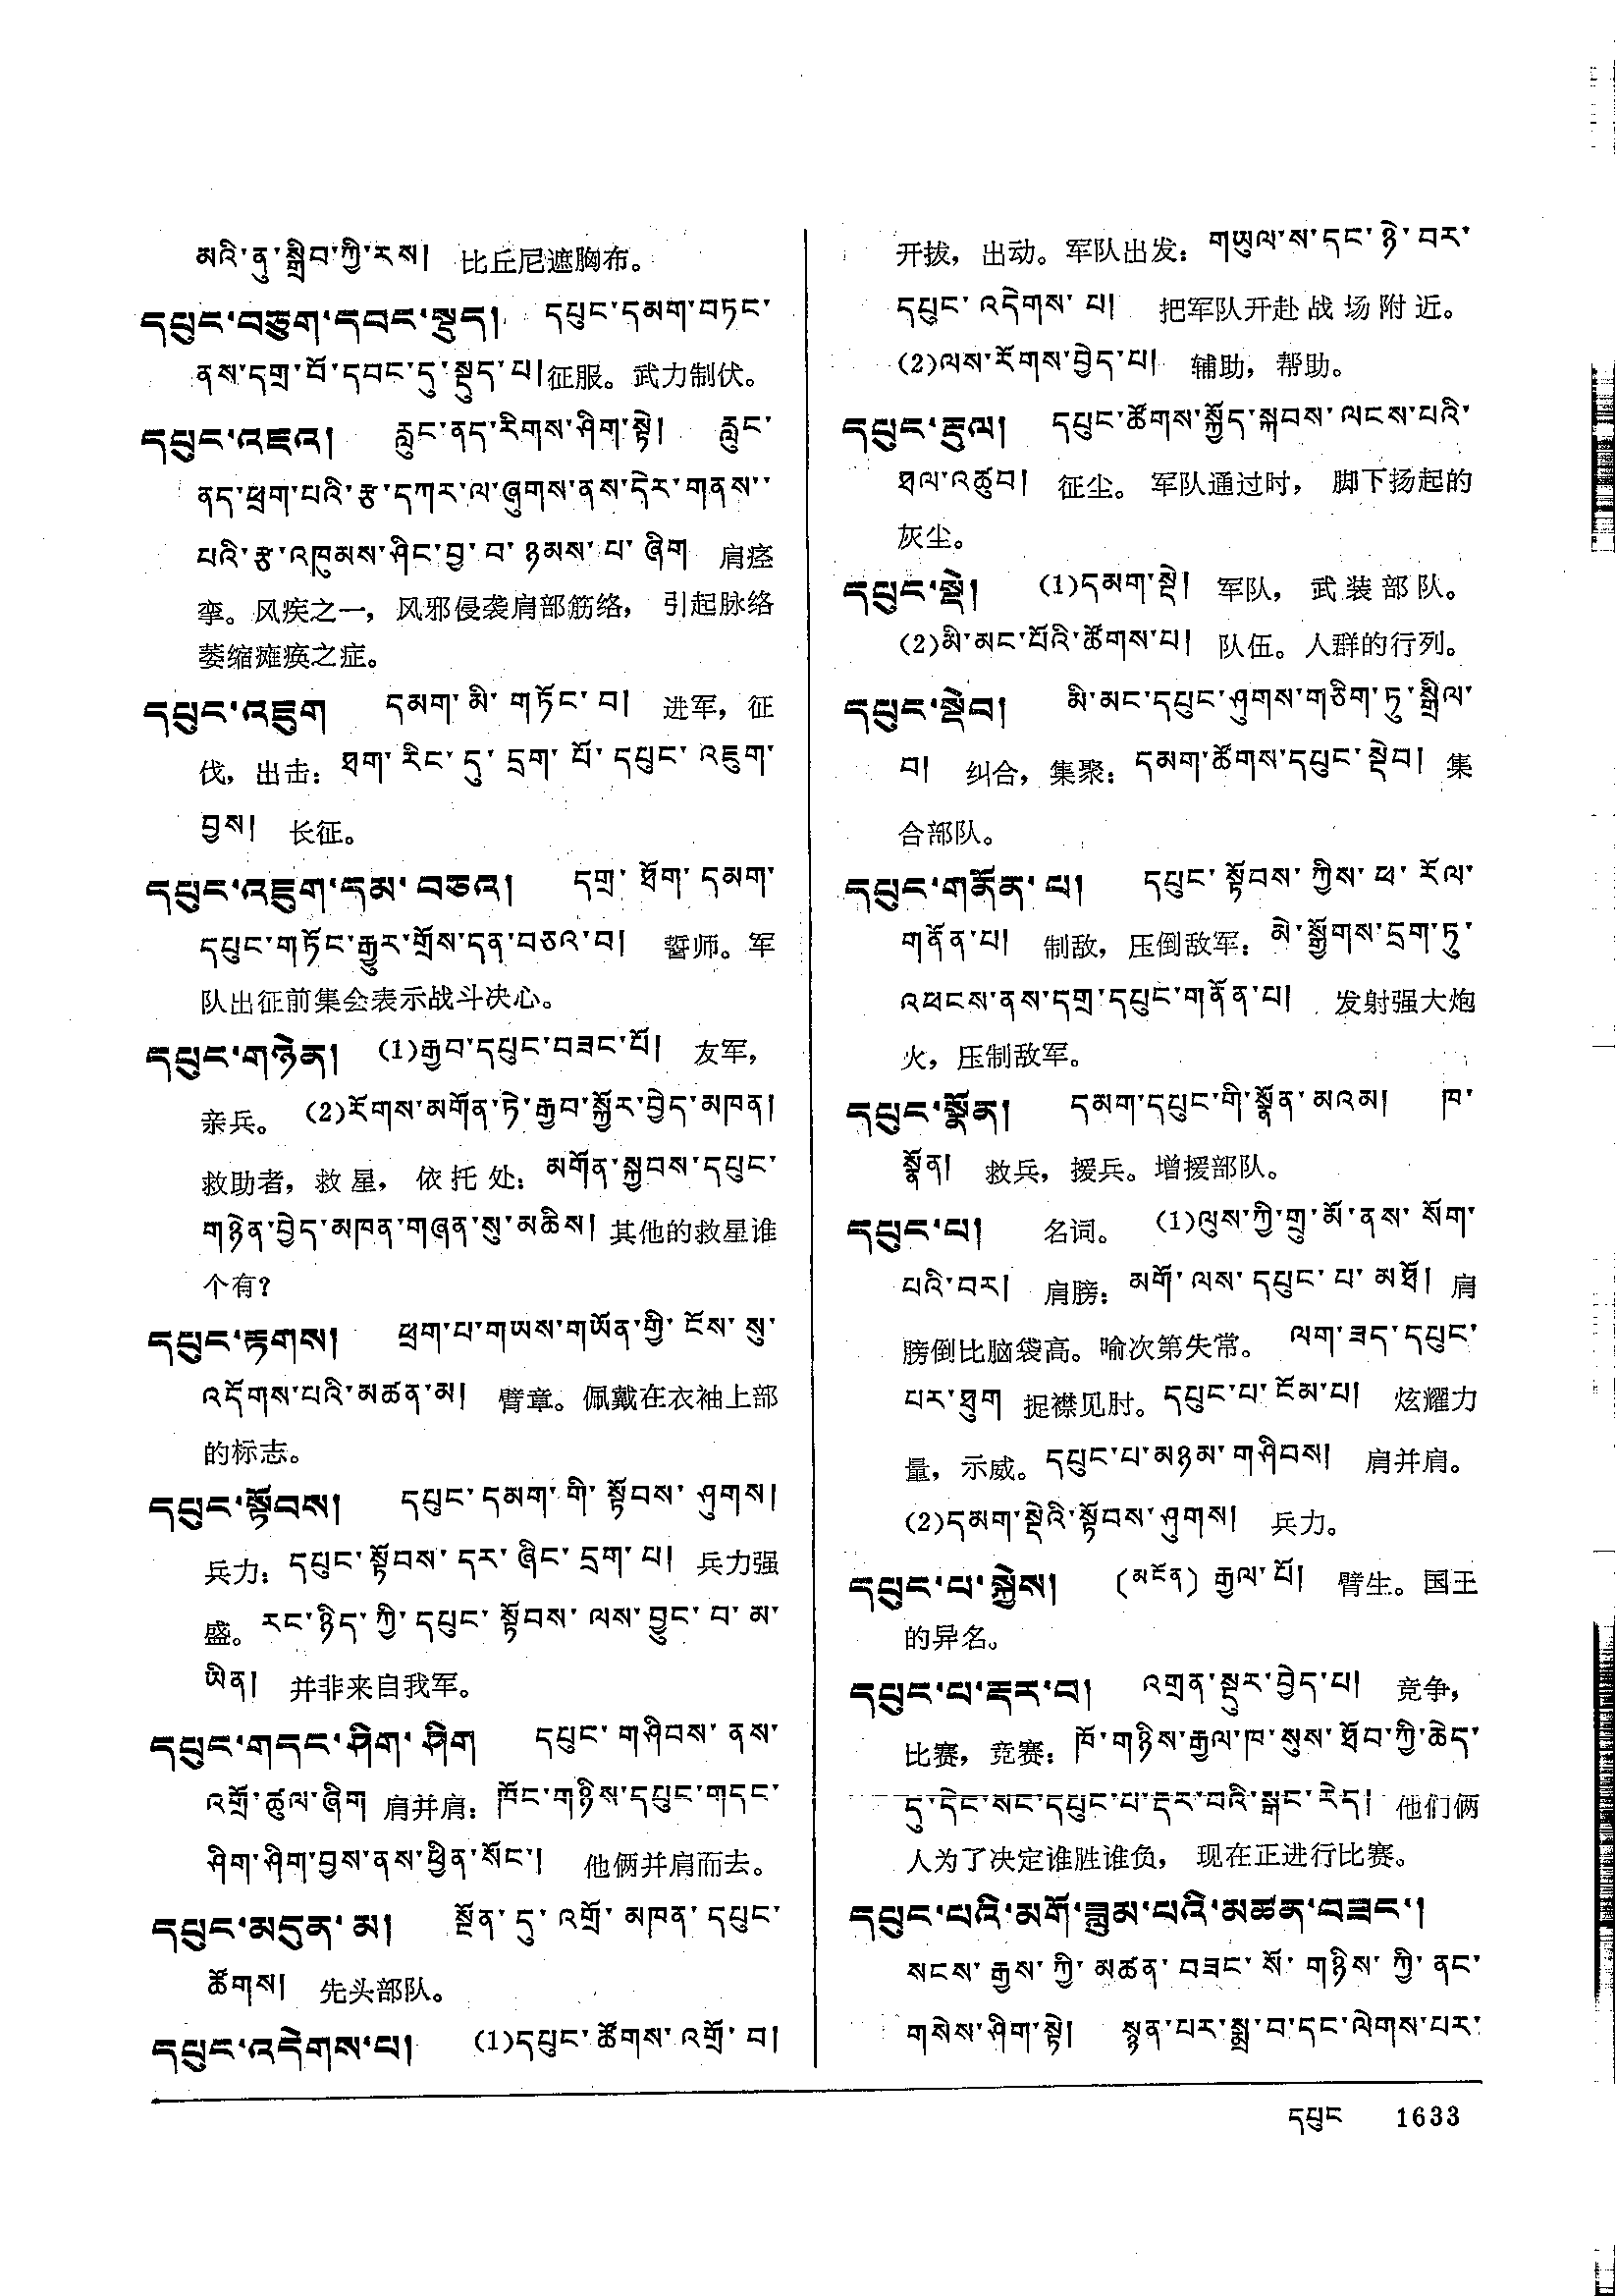 མའི་ནུ་སྒྲིབ་ཀྱི་རས། 比丘尼遮胸布。
དཔུང་བཅུག་དབང་སྡུད། དཔུང་དམག་བཏང་
ནས་དགྲ་བོ་དབང་དུ་སྡུད་པ། 征服。武力制伏。
དཔུང་འཇའ། རླུང་ནད་རིགས་ཤིག་སྟེ། རླུང་
ནད་ཕྲག་པའི་རྩ་དཀར་ལ་ཞུགས་ནས་དེར་གནས་
པའི་རྩ་འཁུམས་ཤིང་བྱ་བ་ཉམས་པ་ཞིག 肩痉
挛。风疾之一，风邪侵袭肩部筋络，引起脉络
萎缩瘫痪之症。
དཔུང་འཇུག དམག་མི་གཏོང་བ། 进军，征
伐，出击：ཐག་རིང་དུ་དྲག་པོ་དཔུང་འཇུག་
བྱས། 长征。
དཔུང་འཇུག་དམ་བཅའ། དགྲ་ཐོག་དམག་
དཔུང་གཏོང་རྒྱུར་གྲོས་དན་བཅའ་བ། 誓师。军
队出征前集会表示战斗决心。
དཔུང་གཉེན། (1)རྒྱབ་དཔུང་བཟང་པོ། 友军，
亲兵。 (2)རོགས་མགོན་ཏེ་རྒྱབ་སྐྱོར་བྱེད་མཁན།
救助者，救星，依托处：མགོན་སྐྱབས་དཔུང་
གཉེན་བྱེད་མཁན་གཞན་སུ་མཆིས། 其他的救星谁
个有？
དཔུང་རྟགས། ཕྲག་པ་གཡས་གཡོན་གྱི་ངོས་སུ་
འདོགས་པའི་མཚན་མ། 臂章。佩戴在衣袖上部
的标志。
དཔུང་སྟོབས། དཔུང་དམག་གི་སྟོབས་ཤུགས།
兵力：དཔུང་སྟོབས་དར་ཞིང་དྲག་པ། 兵力强
盛。རང་ཉིད་ཀྱི་དཔུང་སྟོབས་ལས་བྱུང་བ་མ་
ཡིན། 并非来自我军。
དཔུང་གདང་ཤིག་ཤིག དཔུང་གཤིབས་ནས་
འགྲོ་ཚུལ་ཞིག 肩并肩：ཁོང་གཉིས་དཔུང་གདང་
ཤིག་ཤིག་བྱས་ནས་ཕྱིན་སོང་། 他俩并肩而去。
དཔུང་མདུན་མ། སྔོན་དུ་འགྲོ་མཁན་དཔུང་
ཚོགས། 先头部队。
དཔུང་འདེགས་པ། (1)དཔུང་ཚོགས་འགྲོ་བ།
开拔，出动。军队出发：གཡུལ་ས་དང་ཉེ་བར་
དཔུང་འདེགས་པ། 把军队开赴战场附近。
(2)ལས་རོགས་བྱེད་པ། 辅助，帮助。
དཔུང་རྡུལ། དཔུང་ཚོགས་སྐྱོད་སྐབས་ལངས་པའི་
ཐལ་འཚུབ། 征尘。军队通过时，脚下扬起的
灰尘。
དཔུང་སྡེ། (1)དམག་སྡེ། 军队，武装部队。
(2)མི་མང་པོའི་ཚོགས་པ། 队伍。人群的行列。
དཔུང་སྡེབ། མི་མང་དཔུང་ཤུགས་གཅིག་ཏུ་སྒྲིལ་
བ། 纠合，集聚：དམག་ཚོགས་དཔུང་སྡེབ། 集
合部队。
དཔུང་གནོན་པ། དཔུང་སྟོབས་ཀྱིས་ཕ་རོལ་
གནོན་པ། 制敌，压倒敌军：མེ་སྒྱོགས་དྲག་ཏུ་
འཕངས་ནས་དགྲ་དཔུང་གནོན་པ། 发射强大炮
火，压制敌军。
དཔུང་སྣོན། དམག་དཔུང་གི་སྣོན་མའམ། ཁ་
སྣོན། 救兵，援兵。增援部队。
དཔུང་པ། 名词。 (1)ལུས་ཀྱི་གྲུ་མོ་ནས་སོག་
པའི་བར། 肩膀：མགོ་ལས་དཔུང་པ་མཐོ། 肩
膀倒比脑袋高。喻次第失常。 ལག་ཟད་དཔུང་
པར་ཐུག 捉襟见肘。དཔུང་པ་ངོམ་པ། 炫耀力
量，示威。དཔུང་པ་མཉམ་གཤིབས། 肩并肩。
(2)དམག་སྡེའི་སྟོབས་ཤུགས། 兵力。
དཔུང་པ་སྐྱེས། (མངོན) རྒྱལ་པོ། 臂生。国王
的异名。
དཔུང་པ་རྡར་བ། འགྲན་སྡུར་བྱེད་པ། 竞争，
比赛，竞赛：ཁོ་གཉིས་རྒྱལ་ཁ་སུས་ཐོབ་ཀྱི་ཆེད་
དུ་དེང་སང་དཔུང་པ་རྡར་བའི་སྒང་རེད། 他们俩
人为了决定谁胜谁负，现在正进行比赛。
དཔུང་པའི་མགོ་ཟླུམ་པའི་མཚན་བཟང་།
སངས་རྒྱས་ཀྱི་མཚན་བཟང་སོ་གཉིས་ཀྱི་ནང་
གསེས་ཤིག་སྟེ། སྙན་པར་སྨྲ་བ་དང་ལེགས་པར་
དཔུང 1633